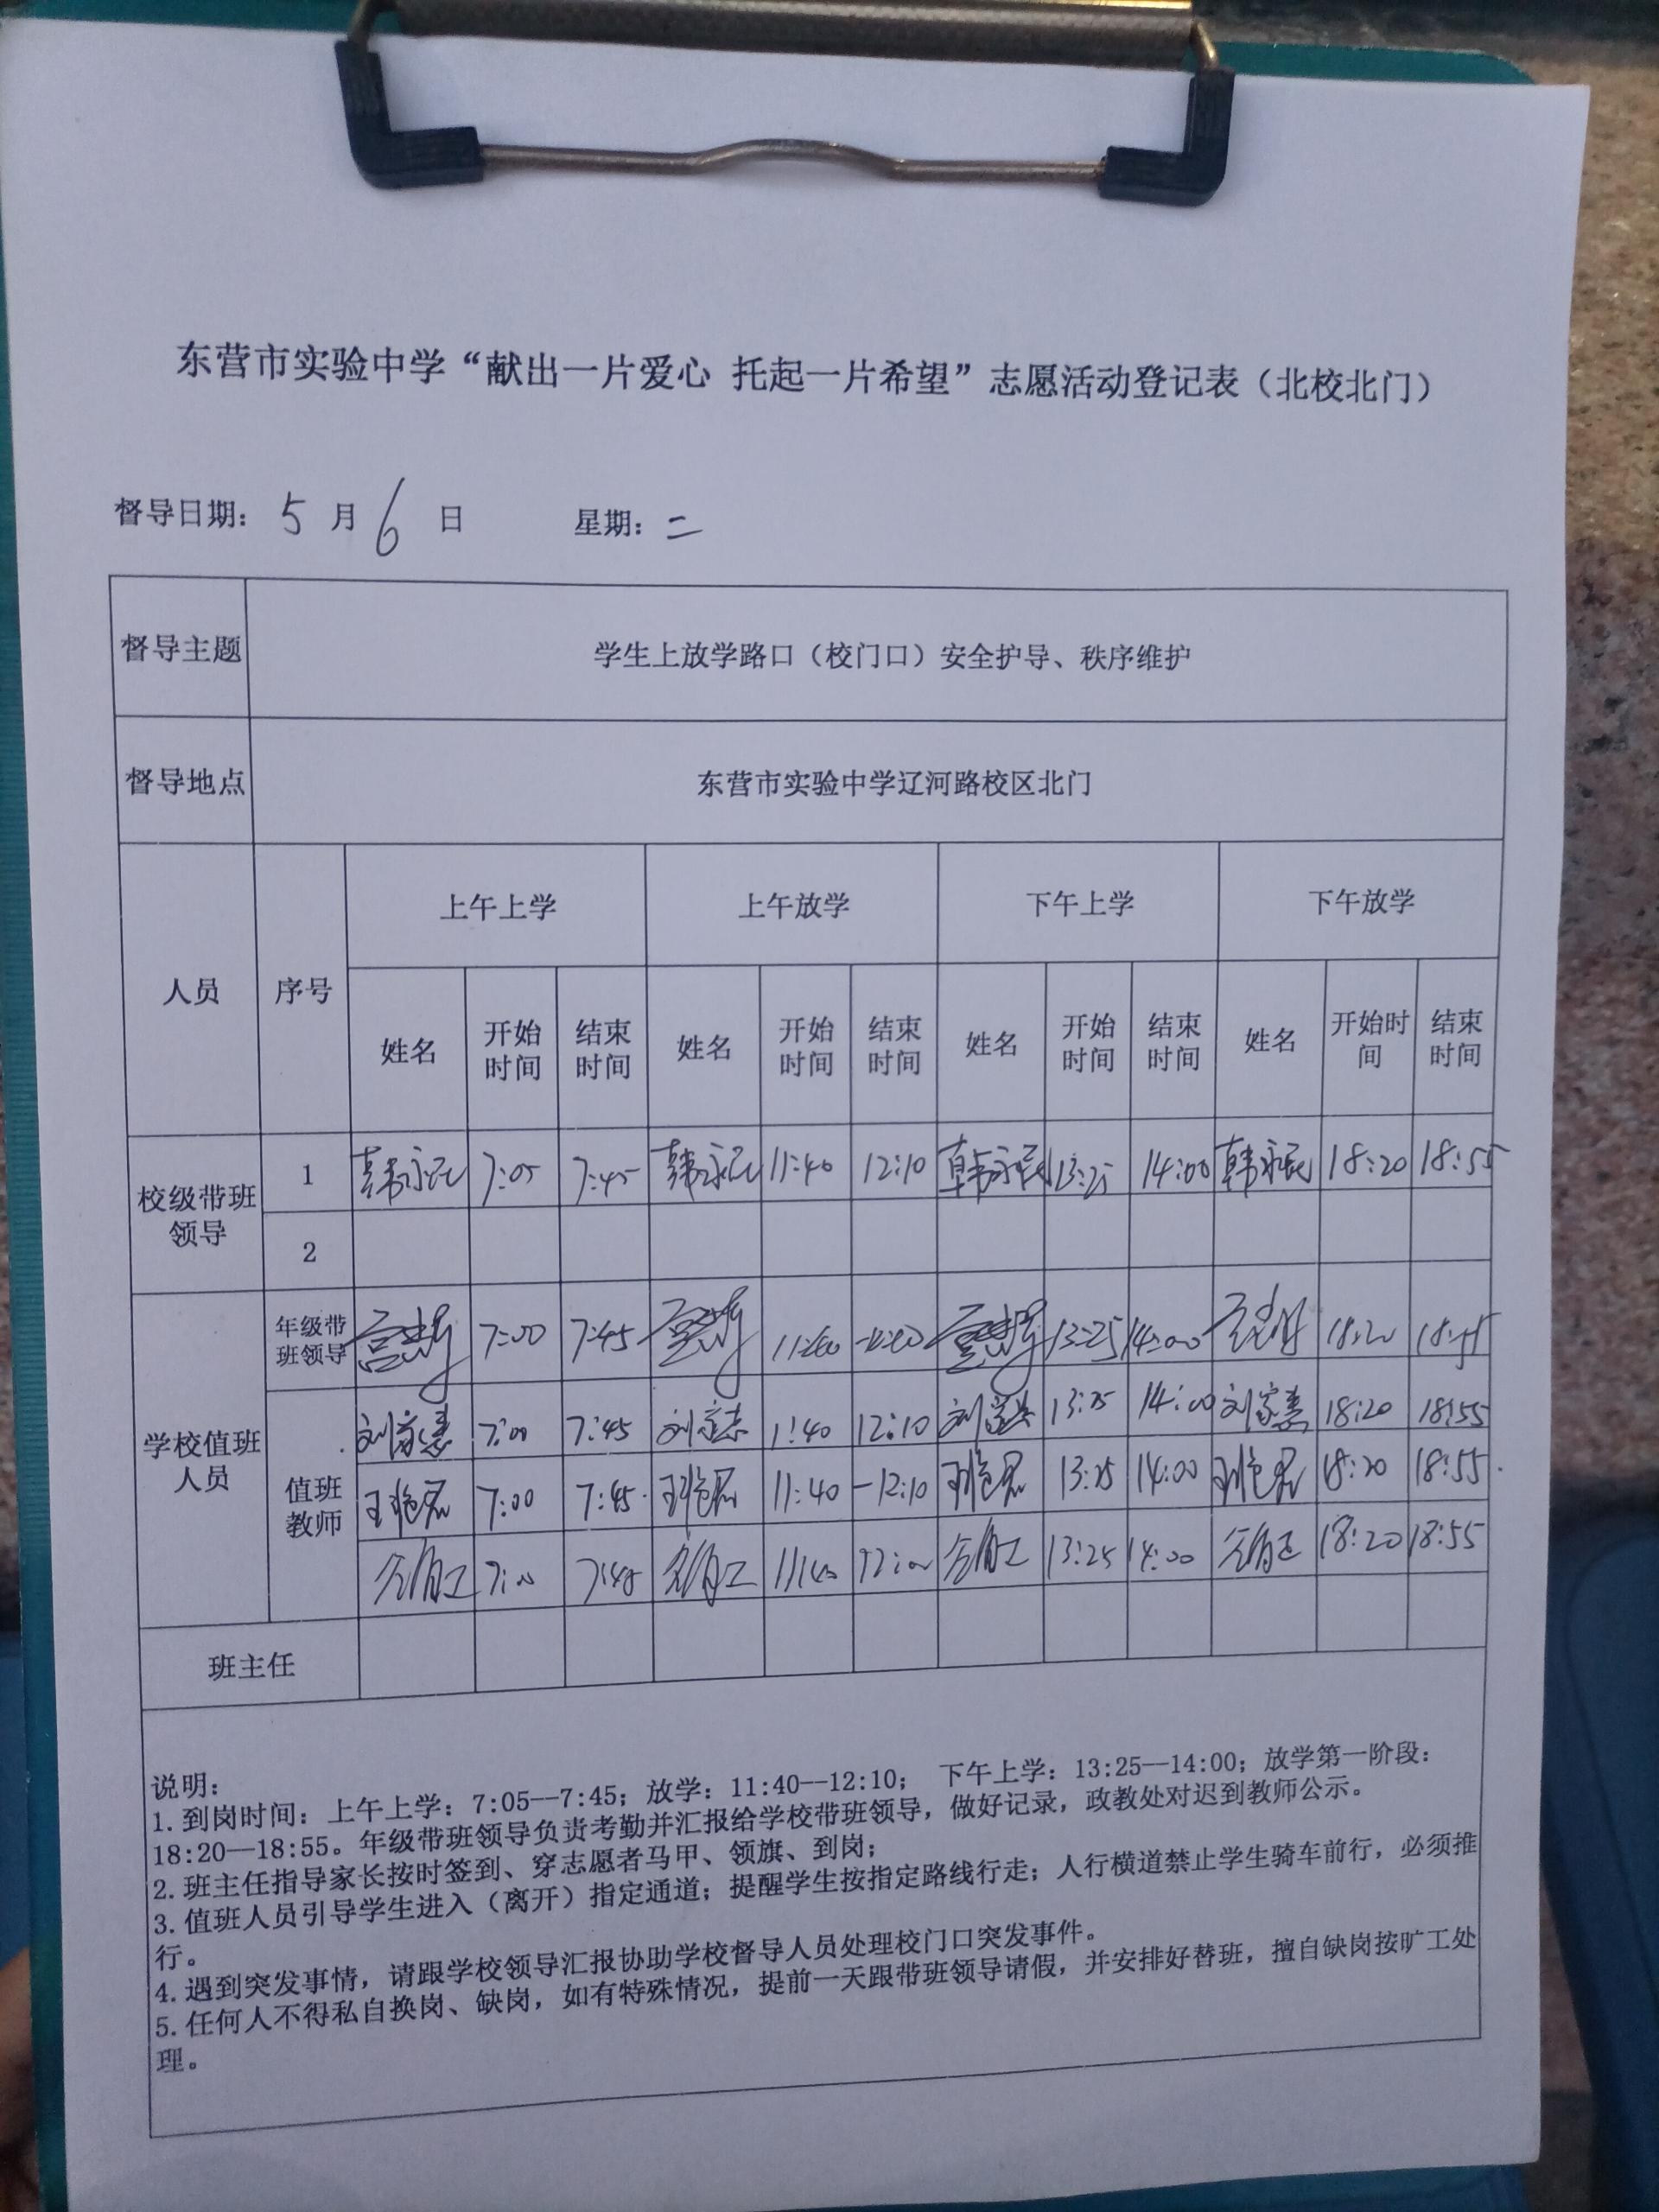 东营市实验中学“献出一片爱心 托起一片希望”志愿活动登记表（北校北门）
督导日期： 5 月 6 日 星期：二
督导主题 学生上放学路口（校门口）安全护导、秩序维护
督导地点 东营市实验中学辽河路校区北门
人员 序号 上午上学 上午放学 下午上学 下午放学
姓名 开始时间 结束时间 姓名 开始时间 结束时间 姓名 开始时间 结束时间 姓名 开始时间 结束时间
校级带班领导 1 韩永民 7:05 7:45 韩永民 11:40 12:10 韩永民 13:25 14:00 韩永民 18:20 18:55
2
学校值班人员 年级带班领导 7:00 7:45 13:25 14:00 18:20
值班教师 7:00 7:45 1:40 12:10 13:25 14:00 18:20 18:55
7:00 7:45 11:40 -12:10 13:25 14:00 18:20 18:55
13:25 14:00 18:20 18:55
班主任
说明：
1.到岗时间：上午上学：7:05--7:45；放学：11:40--12:10； 下午上学：13:25—14:00；放学第一阶段：
18:20—18:55。年级带班领导负责考勤并汇报给学校带班领导，做好记录，政教处对迟到教师公示。
2.班主任指导家长按时签到、穿志愿者马甲、领旗、到岗；
3.值班人员引导学生进入（离开）指定通道；提醒学生按指定路线行走；人行横道禁止学生骑车前行，必须推
行。
4.遇到突发事情，请跟学校领导汇报协助学校督导人员处理校门口突发事件。
5.任何人不得私自换岗、缺岗，如有特殊情况，提前一天跟带班领导请假，并安排好替班，擅自缺岗按旷工处
理。